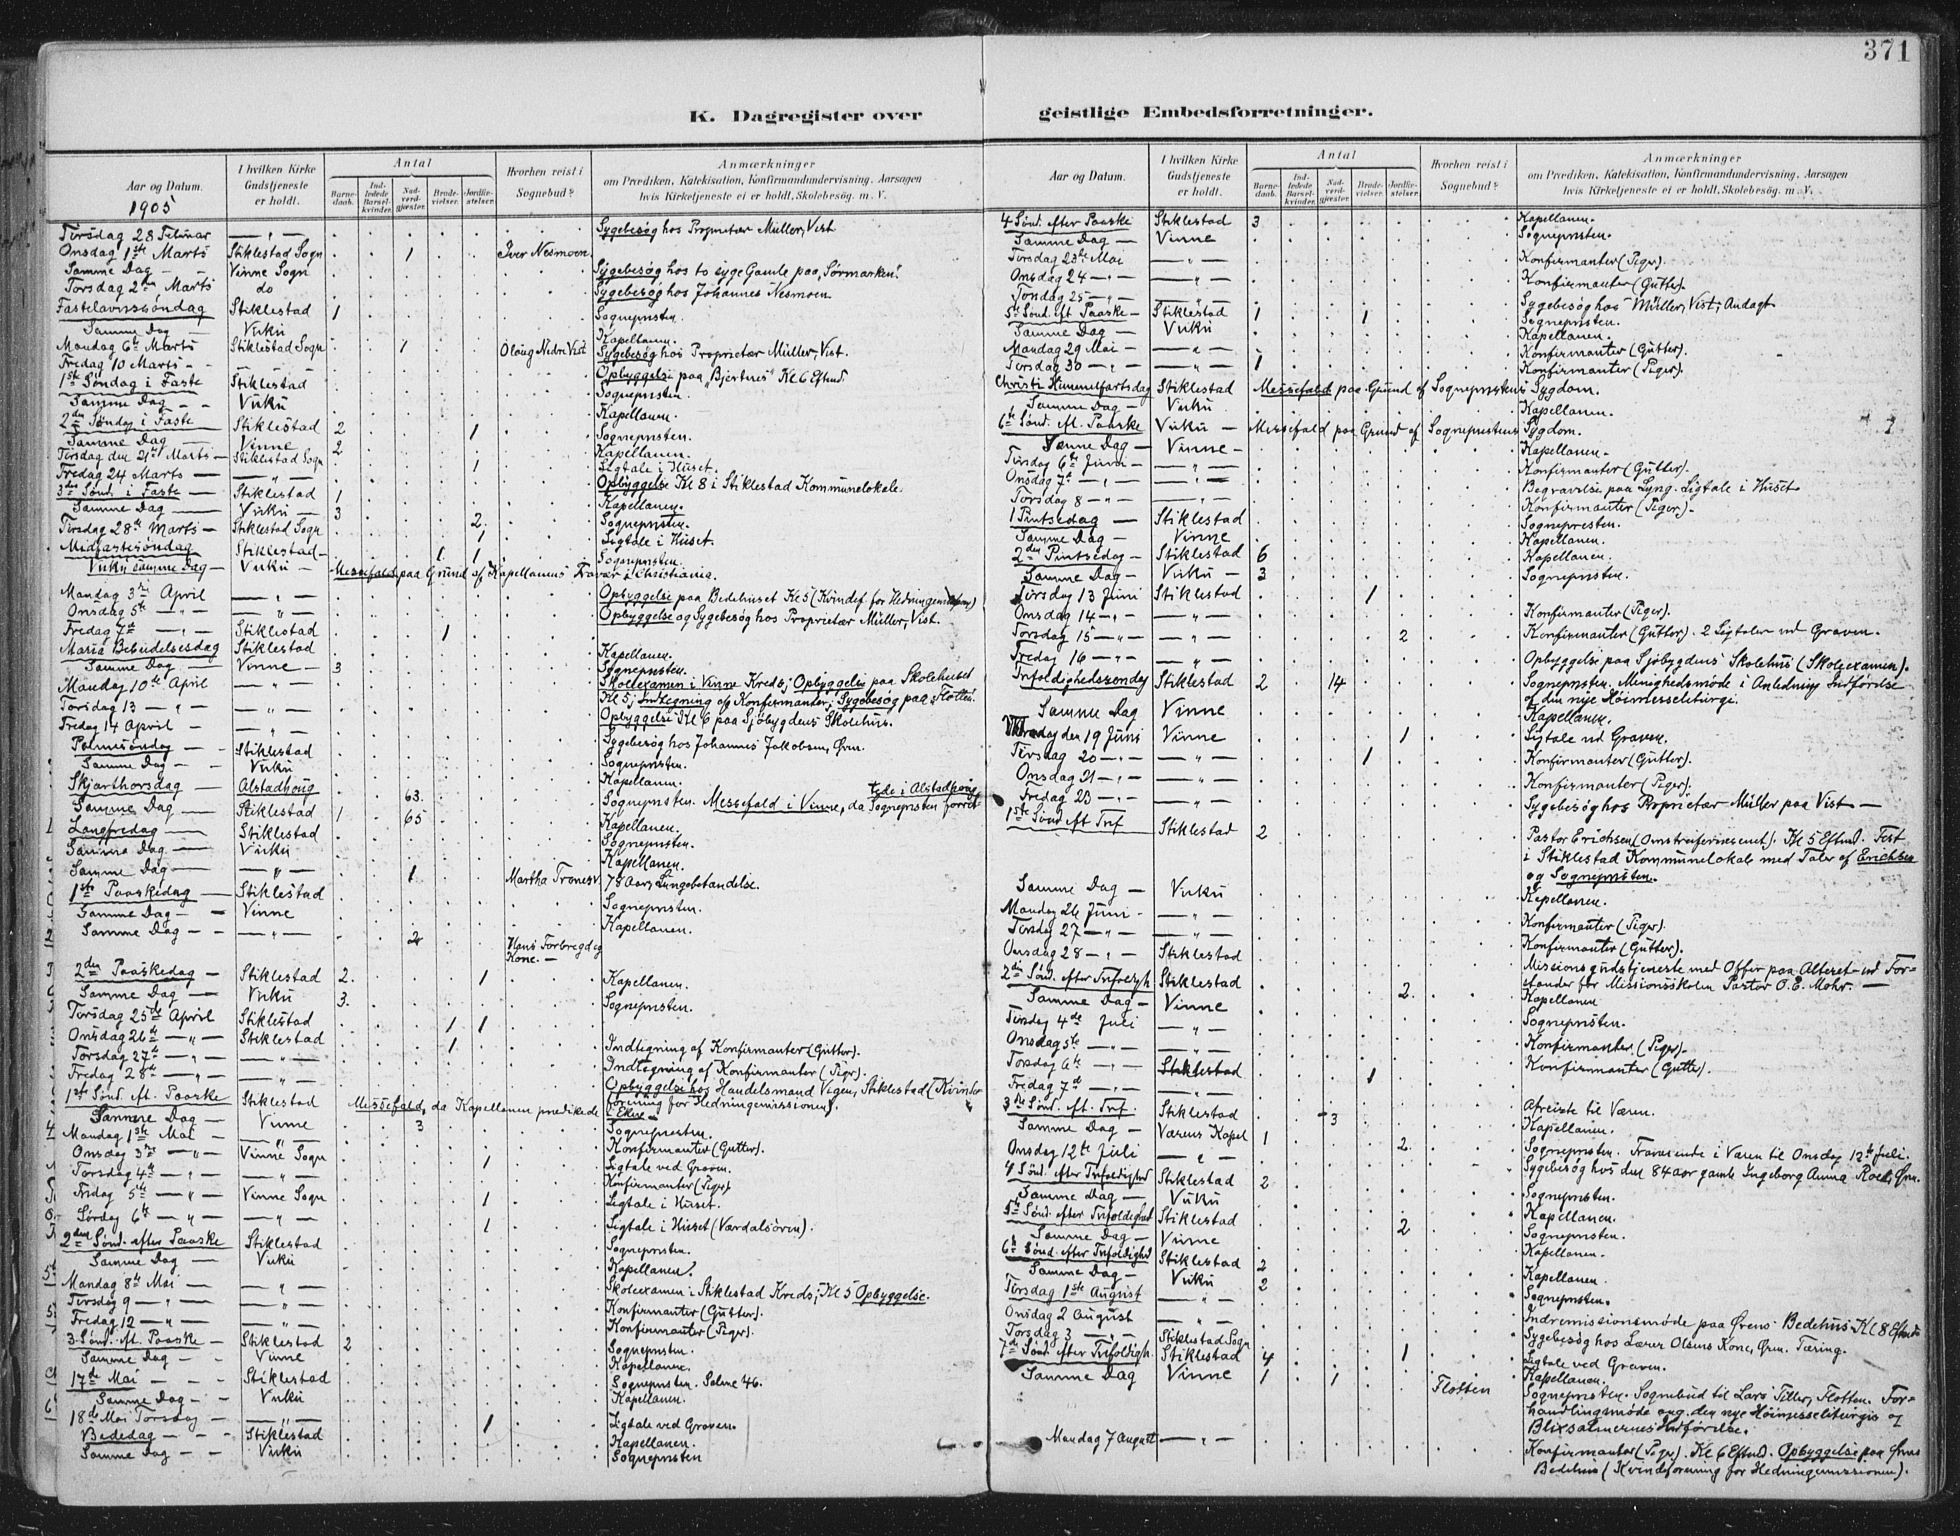 371
K. Dagregister over geistlige Embedsforretninger.
Aar og Datum.
1905
I hvilken Kirke Gudstjeneste er holdt.
Antal
Barnedaab.
Indledede Barselkvinder.
Nadverdgjester.
Brudevielser.
Jordfæstelser.
Hvorhen reist i Sognebud?
Anmærkninger
om Prædiken, Katekisation, Konfirmandundervisning, Aarsagen
hvis Kirketjeneste ei er holdt, Skolebesøg. m. V.
Tirsdag 28 Februar — " — Sygebesøg hos Proprietær Müller, Vist.
Onsdag 1ste Marts Stiklestad Sogn 1 Iver Nesmoen.
Samme Dag — Vinne Sogn Sygebesøg hos to syge Gamle paa „Sørmarken".
Torsdag 2den Marts do Sygebesøg hos Johannes Nesmoen.
Fastelavnssøndag Stiklestad 1 Sognepresten.
Samme Dag — Vuku Kapellanen.
Mandag 6te Marts Stiklestad Sogn 1 Oloug Nedre Vist Sygebesøg hos Proprietær Müller, Vist.
Fredag 10 Marts — Opbyggelse paa „Bjertnes" Kl. 6 Eftmd.
1ste Søndag i Faste Stiklestad Sognepresten.
Samme Dag — Vuku Kapellanen.
2den Søndag i Faste Stiklestad 2 1 Sognepresten.
Samme Dag — Vinne 2 Kapellanen.
Tirsdag den 21de Marts — Stiklestad Sogn 1 Ligtale i Huset.
Fredag 24 Marts — " — Opbyggelse Kl 8 i Stiklestad Kommunelokale.
3die Sønd. i Faste — Stiklestad 1 Kapellanen.
Samme Dag — Vuku — 3 2 Sognepresten.
Tirsdag 28de Marts — Stiklestad Sogn 1 Ligtale i Huset.
Midfastesøndag Stiklestad — 1 1 Sognepresten.
Vuku samme Dag — Vuku — Messefald paa Grund af Kapellanens Fravær i Christiania.
Mandag 3die April — " — Opbyggelse paa Bedehuset Kl 5 (Kvindef. for Hedningemissionen)
Onsdag 5te — " — Opbyggelse og Sygebesøg hos Proprietær Müller, Vist.
Fredag 7de — " — Stiklestad 1
Maria Bebudelsesdag Stiklestad Kapellanen.
Samme Dag — Vinne — 3 Sognepresten.
Mandag 10de April — " — Skoleexamen i Vinne Kreds; Opbyggelse paa Skolehuset
Kl 5; Indtegning af Konfirmanter; Sygebesøg paa „Flotten".
Torsdag 13 — " — Opbyggelse Kl 6 paa Sjøbygdens Skolehus.
Fredag 14 April — " — Sygebesøg hos Johannes Jakobsen, Ørn.
Palmesøndag — Stiklestad Sognepresten.
Samme Dag — Vuku Kapellanen.
Skjærthorsdag — Alstadhoug 63 Sognepresten. Messefald i Vinne, da Sognepresten forrettede i Alstadhoug
Samme Dag — Stiklestad 1 65 Kapellanen.
Langfredag — Stiklestad Sognepresten.
Samme Dag — Vuku Kapellanen.
Samme Dag — " — 1 Martha Tronesv. 78 Aar, Lungebetændelse.
1ste Paaskedag — Stiklestad Sognepresten.
Samme Dag — Vinne Kapellanen.
Samme Dag — " — 2 Hans Forbregd og Kone. —
2den Paaskedag — Stiklestad 2 1 Kapellanen.
Samme Dag — Vuku 3 Sognepresten.
Tirsdag 25de April Stiklestad 1 1
Onsdag 26de — " — Stiklestad 1
Torsdag 27de — " — Indtegning af Konfirmanter (Gutter).
Fredag 28de — " — Indtegning af Konfirmanter (Piger).
Opbyggelse hos Handelsmand Vigen, Stiklestad (Kvindeforening for Hedningemissionen).
1ste Sønd. eft. Paaske Stiklestad Messefald, da Kapellanen prædikede i Ekne —
Samme Dag — Vinne 3 Sognepresten.
Mandag 1ste Mai — " — Konfirmanter (Gutter).
Onsdag 3die — " — Vinne Sogn 1 Ligtale ved Graven.
Torsdag 4de — " — Konfirmanter (Piger)
Fredag 5te — " — Vinne Sogn 1 Ligtale i Huset.
Lørdag 6te — " — 1 Ligtale i Huset (Værdalsøren).
2den Sønd. efter Paaske Stiklestad Sognepresten.
Samme Dag — Vuku Kapellanen.
Mandag 8de Mai — " — Skoleexamen i Stiklestad Kreds; Kl 5 Opbyggelse.
Tirsdag 9 — " — Konfirmanter (Gutter).
Fredag 12 — " — Konfirmanter (Piger).
3. Sønd. eft. Paaske — Stiklestad 2 Sognepresten.
Samme Dag — Vinne Kapellanen.
17de Mai — Stiklestad Sognepresten. Salme 46.
Samme Dag — Vuku Kapellanen.
18de Mai Torsdag — " — 1 Ligtale ved Graven.
Bededag — Stiklestad Kapellanen.
Samme Dag — Vuku Sognepresten
Aar og Datum.
I hvilken Kirke Gudstjeneste er holdt.
Antal
Barnedaab.
Indledede Barselkvinder.
Nadverdgjester.
Brudevielser.
Jordfæstelser.
Hvorhen reist i Sognebud?
Anmærkninger
om Prædiken, Katekisation, Konfirmandundervisning, Aarsagen
hvis Kirketjeneste ei er holdt, Skolebesøg. m. V.
4 Sønd. efter Paaske Stiklestad 3 Kapellanen.
Samme Dag — Vinne Sognepresten.
Tirsdag 23de Mai — " — Konfirmanter (Piger).
Onsdag 24 — " — Konfirmanter (Gutter).
Torsdag 25 — " — Sygebesøg hos Müller, Vist; Andagt.
5te Sønd. eft. Paaske — Stiklestad 1 1 Sognepresten.
Samme Dag — Vuku Kapellanen.
Mandag 29 Mai — " — Konfirmanter (Gutter).
Tirsdag 30 — " — 1 Konfirmanter (Piger).
Christi Himmelfartsdag Stiklestad Messefald paa Grund af Sogneprestens Sygdom.
Samme Dag — Vuku Kapellanen.
6te Sønd. eft. Paaske Vuku — Messefald paa Grund af Sogneprestens Sygdom.
Samme Dag — Vinne — Kapellanen.
Tirsdag 6te Juni — " — Konfirmanter (Gutter).
Onsdag 7de — " — Begravelse paa Lyng. Ligtale i Huset.
Torsdag 8 — " — Konfirmanter (Piger).
1 Pintsedag — Stiklestad Sognepresten.
Samme Dag — Vinne Kapellanen.
2den Pintsedag — Stiklestad 6 Kapellanen.
Samme Dag — Vuku — 3 Sognepresten.
Tirsdag 13 Juni Stiklestad 1
Onsdag 14 — " — Konfirmanter (Piger).
Torsdag 15 — " — 2 Konfirmanter (Gutter). 2 Ligtaler ved Graven.
Fredag 16 — " — Opbyggelse paa Sjøbygdens Skolehus (Skoleexamen).
Trefoldighedssøndag Stiklestad 2 14 Sognepresten. Menighedsmøde i Anledning Indførelse
af den nye Høimesseliturgi.
Samme Dag Vinne Kapellanen.
Mandag den 19 Juni Vinne 1 Ligtale ved Graven.
Tirsdag 20 — " — 1 Konfirmanter (Gutter).
Onsdag 21 — " — Konfirmanter (Piger).
Fredag 23 — " — Sygebesøg hos Proprietær Müller paa Vist —
1ste Sønd. eft. Tref. Stiklestad 2 Pastor Erichsen (Omstreifervæsenet). Kl 5 Eftmd. Fest
i Stiklestad Kommunelokale med Taler af Erichsen
og Sognepresten.
Samme Dag — Vuku Kapellanen.
Mandag 26 Juni — " — Konfirmanter (Piger).
Tirsdag 27 — " — Konfirmanter (Gutter).
Onsdag 28 — " — Stiklestad Missionsgudstjeneste med Offer paa Alteret ved Forstander for Missionsskolen Pastor O. E. Mohr. —
2den Sønd. efter Trefoldigh. Stiklestad 2 Kapellanen
Samme Dag — Vinne Sognepresten.
Tirsdag 4de Juli — " — Konfirmanter (Piger).
Onsdag 5te — " — Konfirmanter (Gutter).
Torsdag 6te — " — Stiklestad 1
Fredag 7de — " — Afreiste til Væren.
3die Sønd. eft. Tref. Stiklestad 3 Kapellanen.
Samme Dag — Værens Kapel 1 2 Sognepresten. Fraværende i Væren til Onsdag 12te Juli.
Onsdag 12te Juli — " — Sygebesøg hos den 84 aar gamle Ingeborg Anna Roel, Ørn.
4 Sønd. efter Trefoldighed Stiklestad 2 Sognepresten.
Samme dag — Vuku Kapellanen.
5te Sønd. efter Trefoldighed Stiklestad 2 Sognepresten.
Samme Dag — Vinne Kapellanen.
6te Sønd. efter Trefoldighed Stiklestad 2 Kapellanen.
Samme Dag — Vuku 2 Sognepresten.
Tirsdag 1ste August — " —
Onsdag 2 August — " — Indremissionsmøde paa Ørens Bedehus Kl 8 Eftmd.
Torsdag 3 — " — Stiklestad Sogn Sygebesøg hos Lærer Olsens Kone, Ørn. Tæring.
1 Ligtale ved Graven.
7de Sønd. efter Trefoldigh. Stiklestad 4 Kapellanen.
Samme Dag Vinne 1 1 Flotten Sognepresten. Sognebud til Lars Tiller, Flotten. Forhandlingsmøde ang. den nye Høimesseliturgis og
Blixsalmernes Indførelse.
Mandag 7 August — " — Konfirmanter (Piger). Kl 6 Eftmd. Opbyggelse paa Ørens
Bedehus (Kvindeforening for Hedningemissionen).